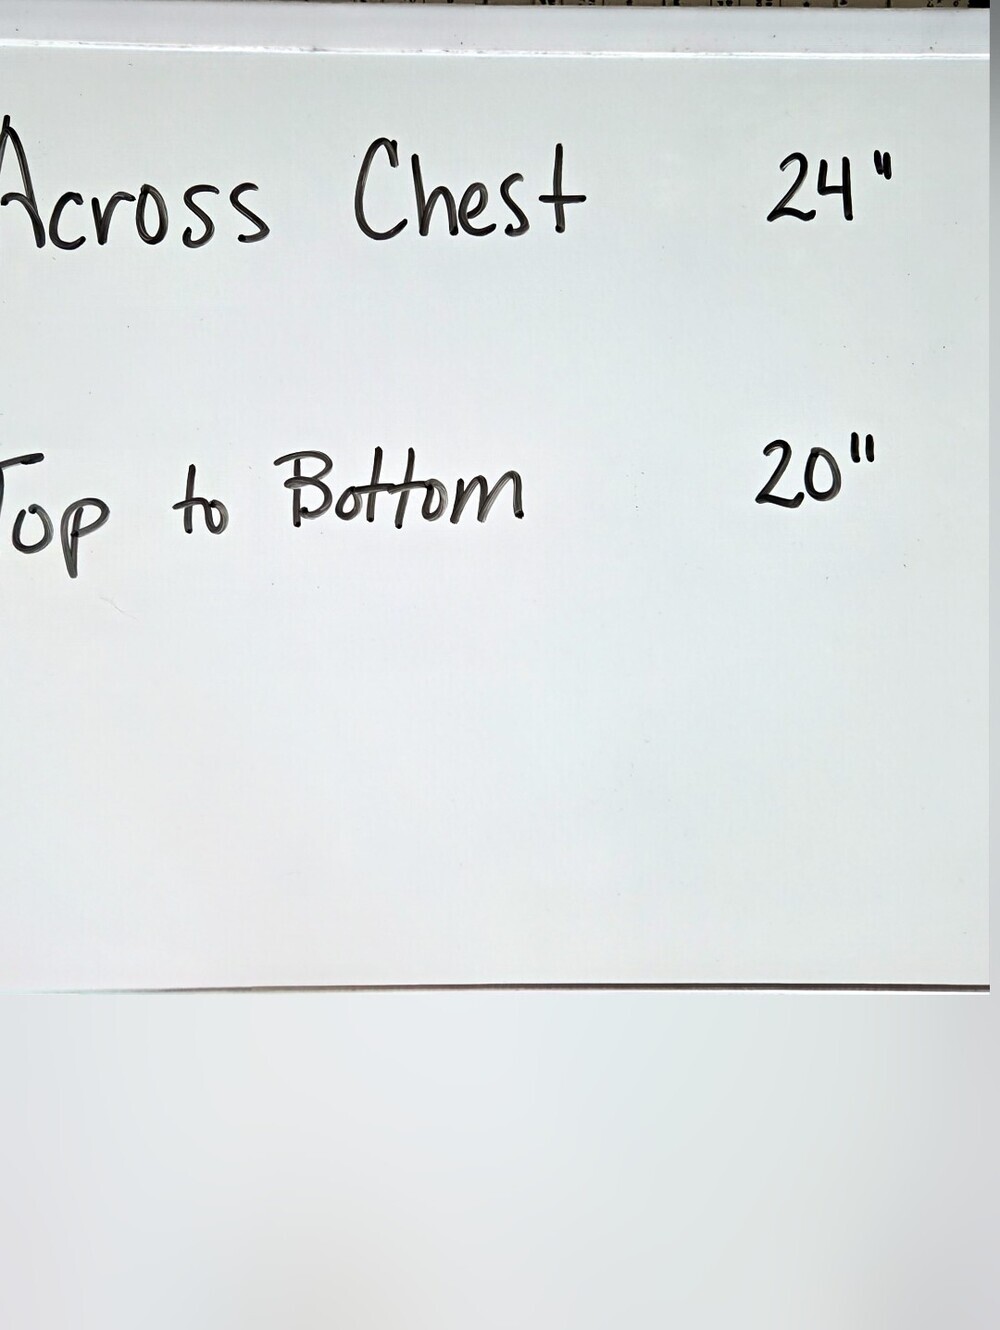 Across Chest 24"
Top to Bottom 20"